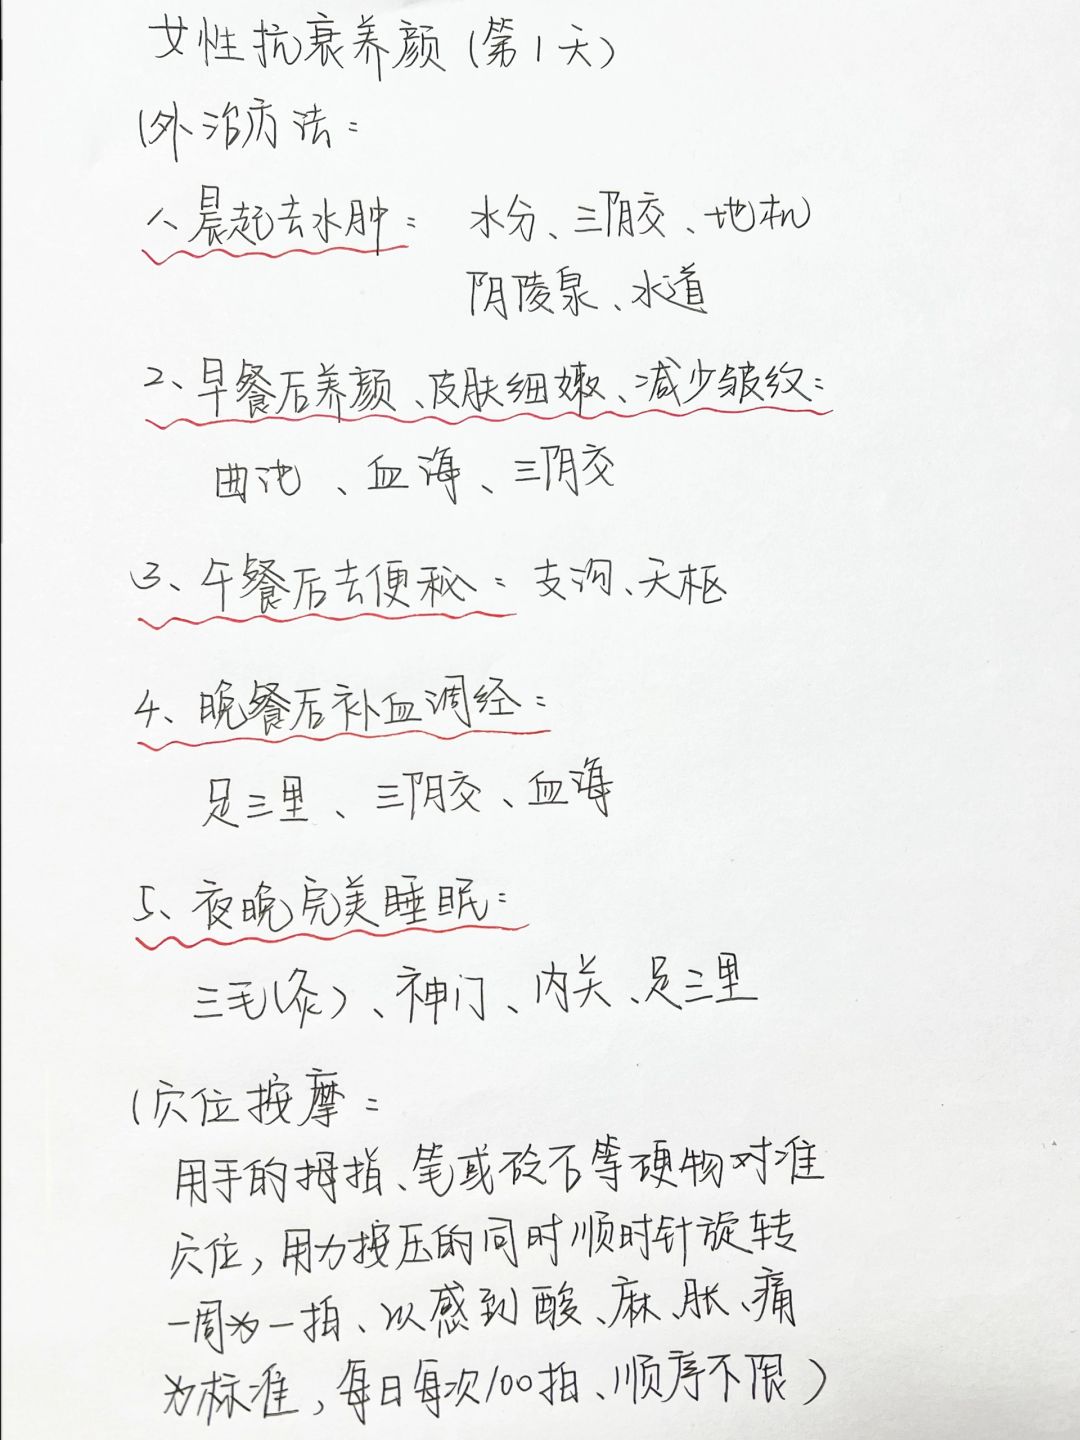 女性抗衰养颜(第1天)
(外治疗法:
1、晨起去水肿: 水分、三阴交、地机
阴陵泉、水道
2、早餐后养颜、皮肤细嫩、减少皱纹:
曲池、血海、三阴交
3、午餐后去便秘: 支沟、天枢
4、晚餐后补血调经:
足三里、三阴交、血海
5、夜晚完美睡眠:
三毛(灸)、神门、内关、足三里
(穴位按摩:
用手的拇指、笔或砭石等硬物对准
穴位,用力按压的同时顺时针旋转
一周为一拍、以感到酸、麻、胀、痛
为标准,每日每次100拍、顺序不限)